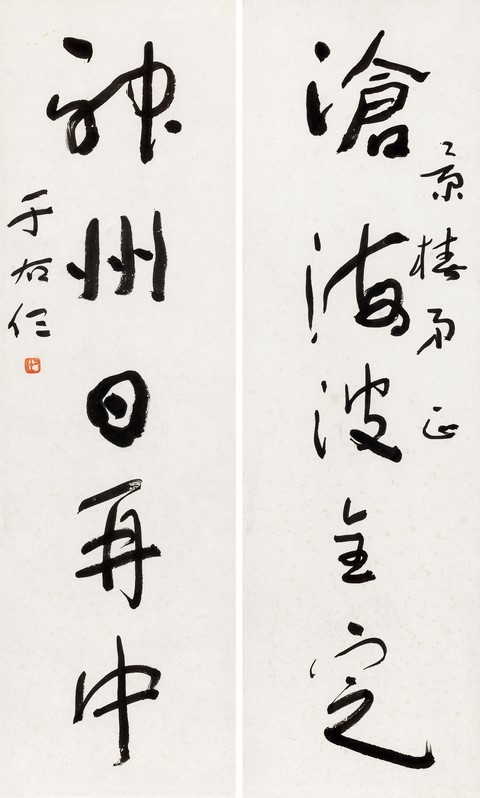 景椿弟正
滄海波全定
神州日再中
于右任